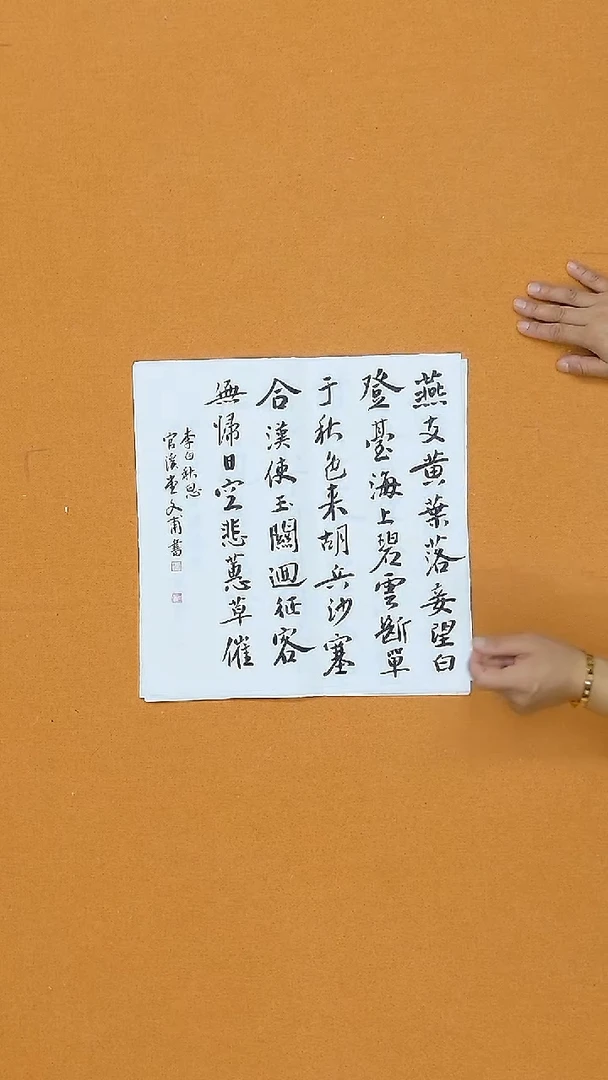 燕支黄葉落妾望白
登臺海上碧雲斷單
于秋色来胡兵沙塞
合漢使玉關迴征客
無歸日空悲蕙草催
李白秋思
官溪文甫書